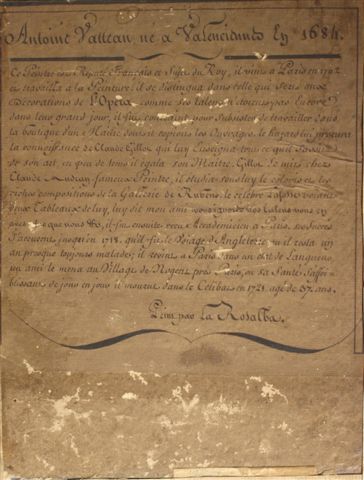 Antoine Vatteau né a Valencienne En 1684.
Ce Peintre est Réputé François et Sujet du Roy, il vint a Paris en 1702
et travailla a la Peinture; il se distingua dans celle qui Sert aux
Decorations de l'Opera, comme ses talens n'étoient pas Encore
dans leur grand jour, il fut contraint pour Subsister de travailler dans
la boutique d'un Maître dont il copioit les Ouvrages. le hazard lui procura
la connoissance de Claude Gillot qui luy Enseigna tout ce qu'il Savoit
de son art, en peu de tems il égala son Maître Gillot. Se mit chez
Claude Audran fameux Peintre, il etudia sous luy le coloris et les
riches compositions de la Gallerie de Rubens. le célèbre voiant
deux Tableaux de luy, luy dit mon ami vous ignorés vos talens vous en
savés plus que nous. il fut ensuite reçu Academicien a Paris, ses Succès
jusqu'en 1718. qu'il fit le Voiage d'Angleterre, ou il resta un
an presque toujours malade; il revint a Paris dans un etat de Langueur,
un ami le mena au Village de Nogent, près Paris, ou sa Santé s'affoi-
blissant de jour en jour il mourut dans le Célibat en 1721. agé de 37. ans.
Peint par La Rosalba.